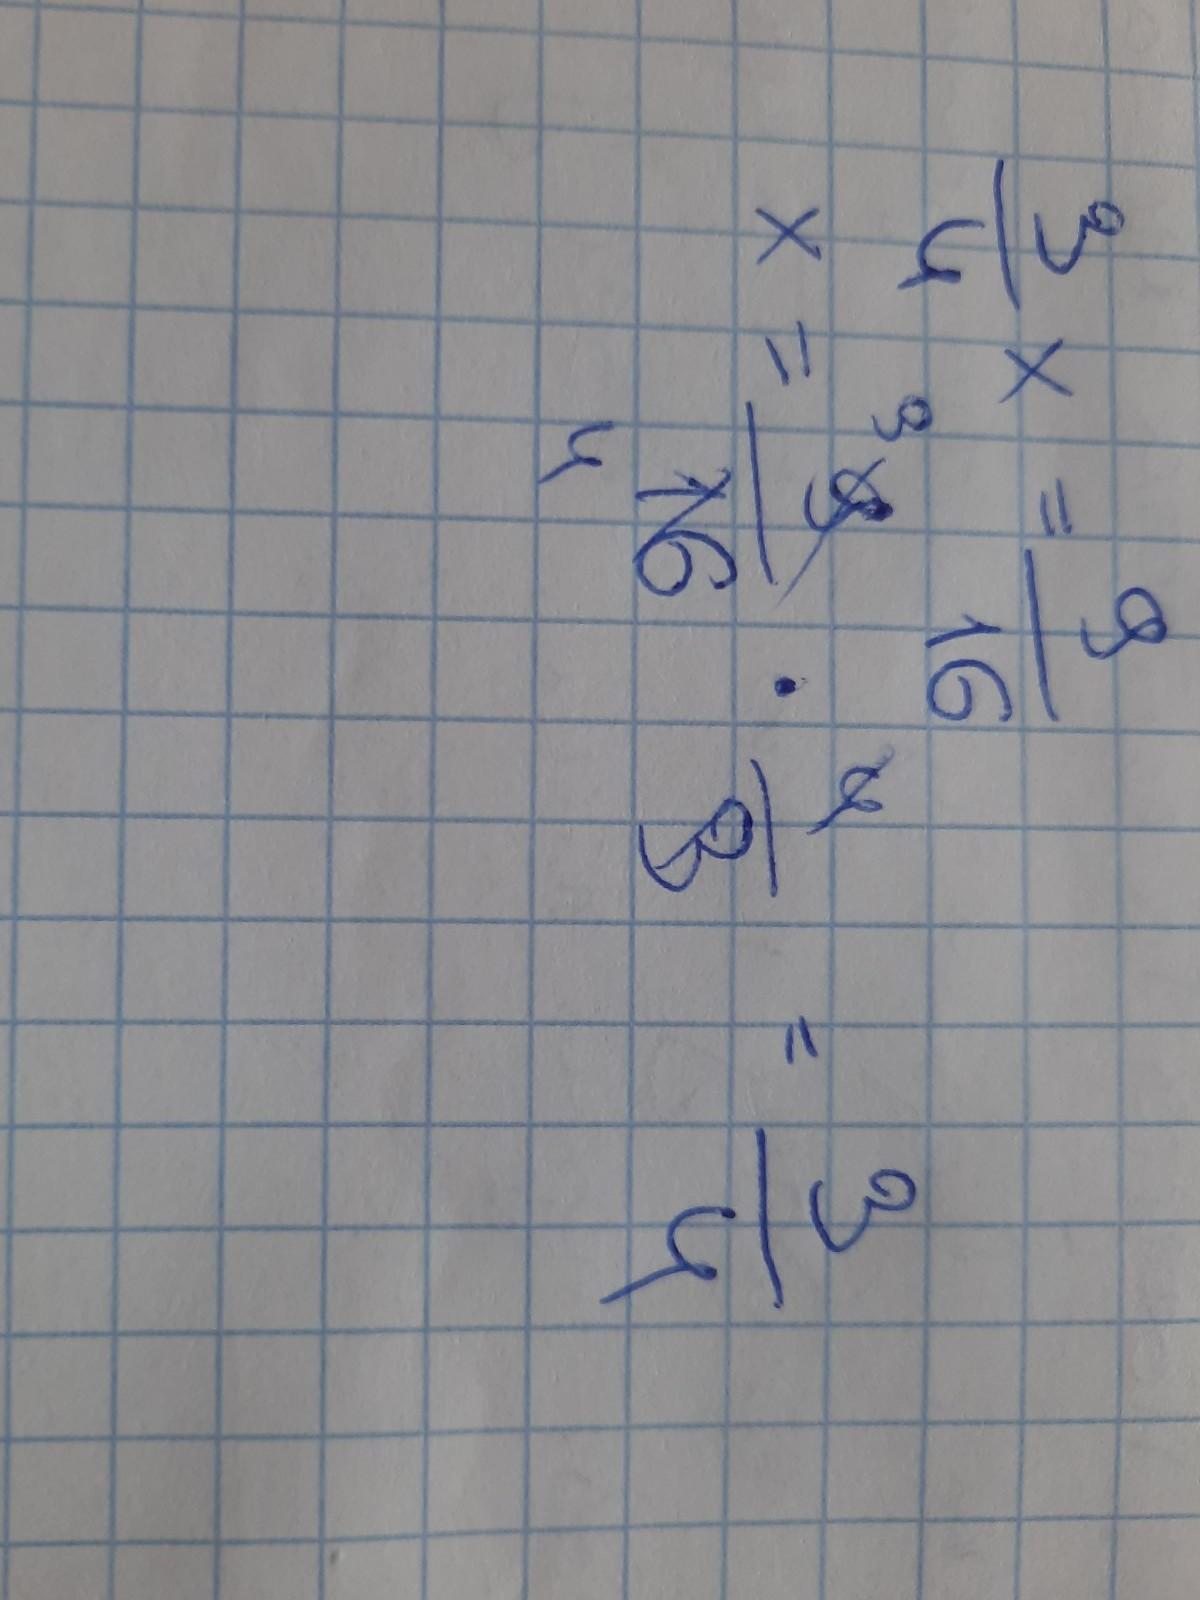 3/4 x = 9/16
x = 9/16 · 4/3 = 3/4
3
4